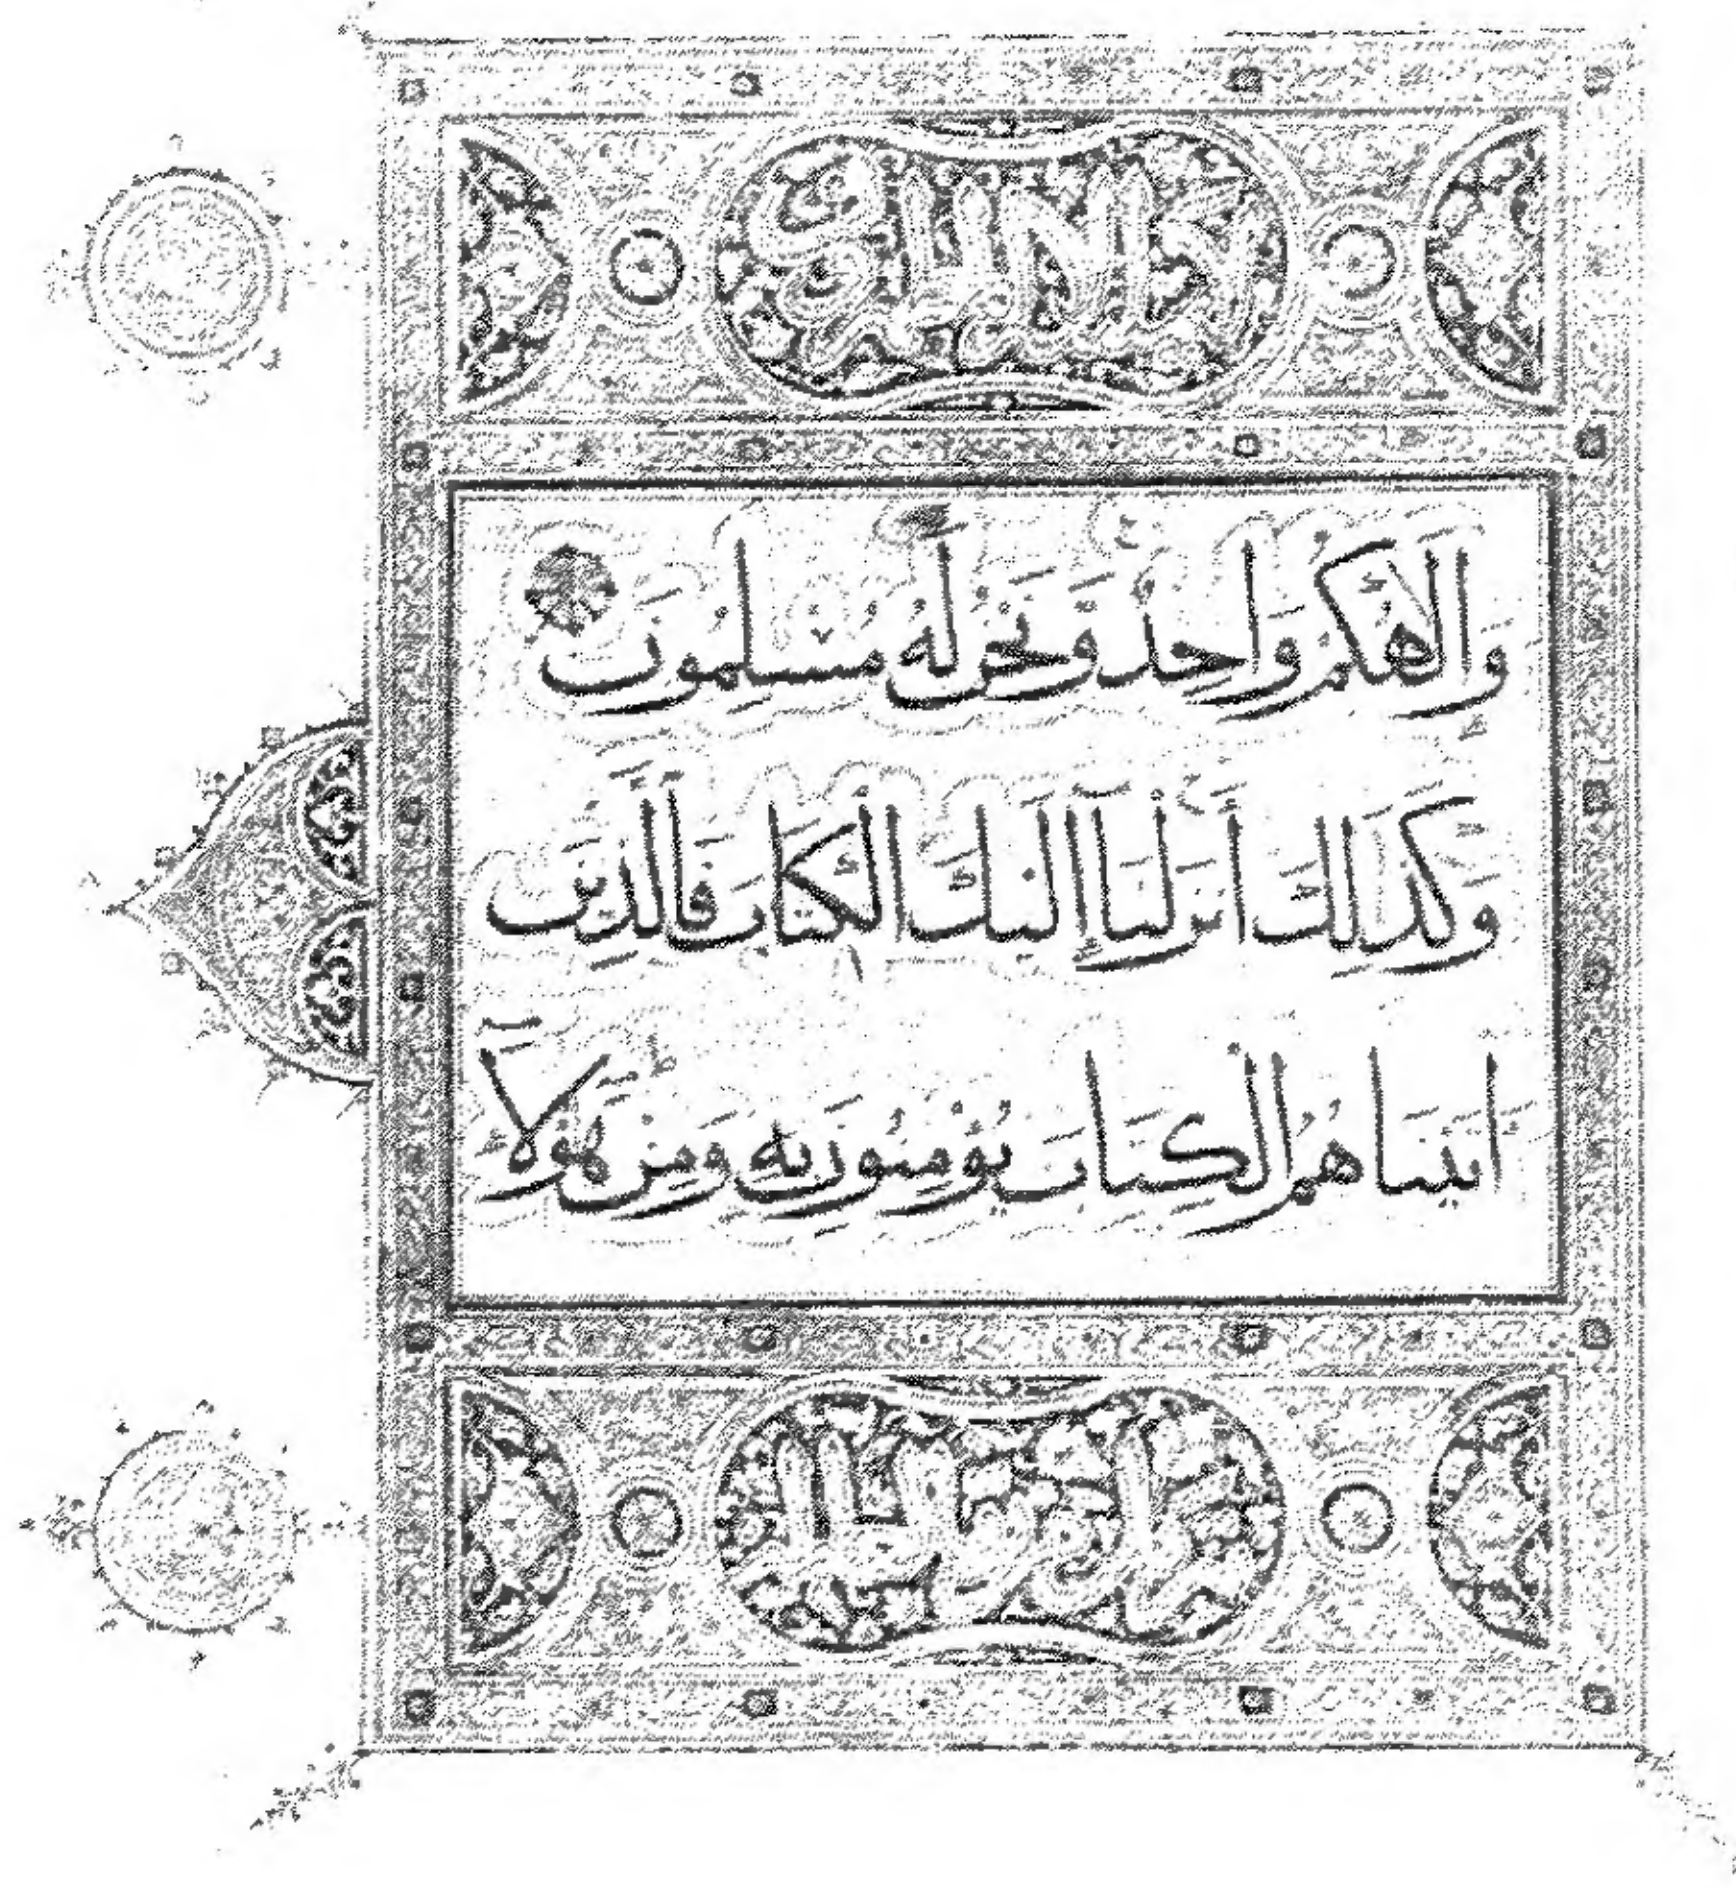 وَإِلَٰهُكُمْ وَاحِدٌ وَنَحْنُ لَهُ مُسْلِمُونَ
وَكَذَلِكَ أَنْزَلْنَا إِلَيْكَ الْكِتَابَ فَالَّذِينَ
اتَيْنَاهُمُ الْكِتَابَ يُؤْمِنُونَ بِهِ وَمِنْ هَؤُلَا